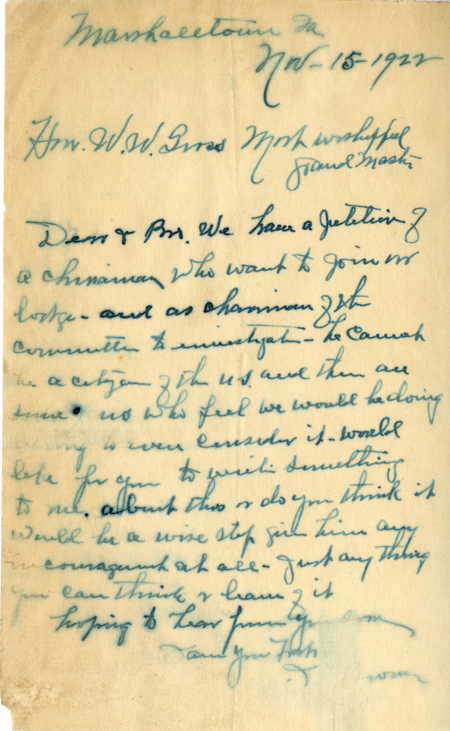 Marshalltown Ia
Nov-15-1922
Hon. W.W. Gross Most worshipful
grand Master
Dear & Bro. We have a petition of
a chinaman who want to join our
lodge - and as chairman of the
committee to investigate - he cannot
be a citizen of the U.S. and then are
some us who feel we would be doing
wrong to even consider it - would
like for you to write something
to me. about this & do you think it
would be a wise step give him any
encouragment at all - Just any thing
you can think & learn of it
hoping to hear from you soon
I am your Frat